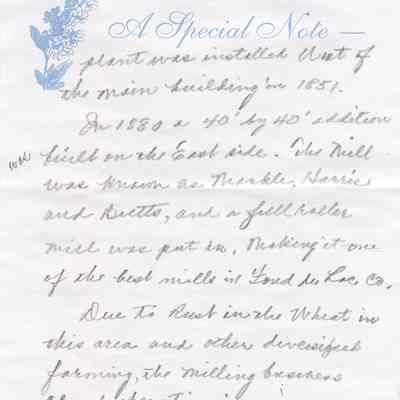 A Special Note —
plant was installed West of
the main building in 1851.
In 1880 a 40' by 40' addition
was
built on the East side. The Mill
was known as Markle, Harris
and Buetts, and a full roller
mill was put in, Making it one
of the best mills in Fond du Lac Co.
Due to Rust in the Wheat in
this area and other diversified
farming, the milling business